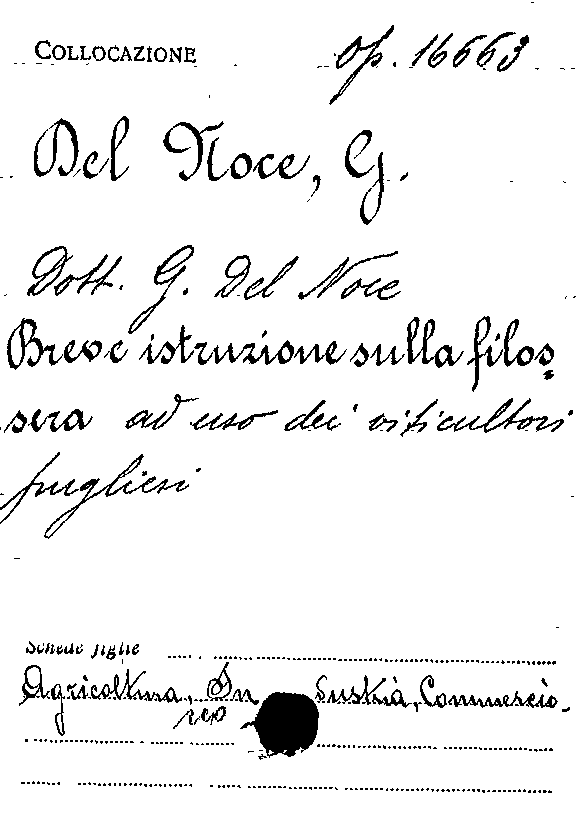 COLLOCAZIONE Op. 16663
Del Noce, G.
Dott. G. Del Noce
Breve istruzione sulla filos=
sera ad uso dei viticultori
pugliesi
Schede figlie
Agricoltura, In dustria, Commercio.